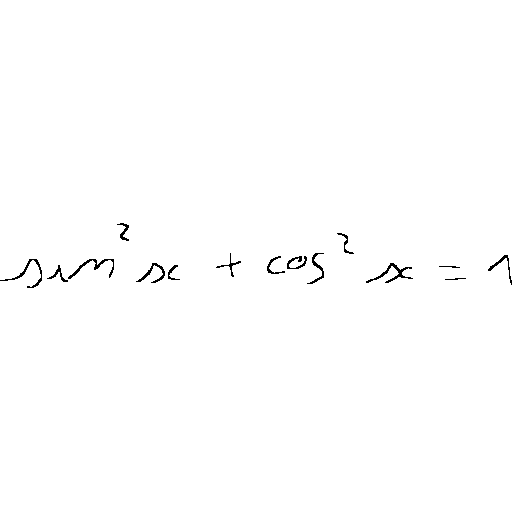 sin² x + cos² x = 1